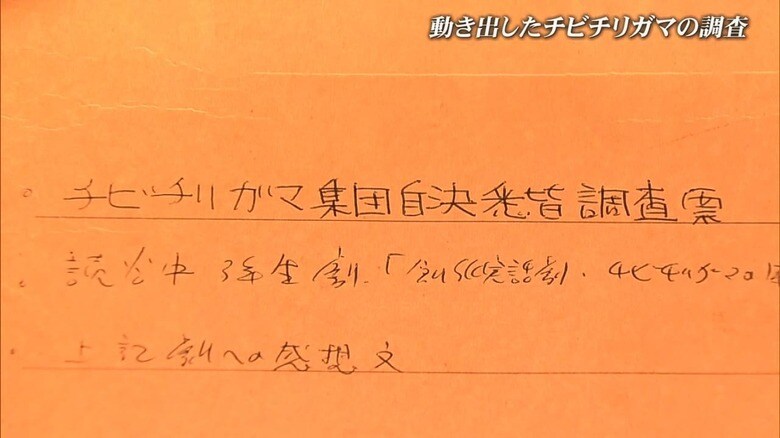 動き出したチビチリガマの調査
チビチリガマ集団自決悉皆調査票
読谷中 3年生劇.「創作 話劇・チビチリガマ
上記劇への感想文